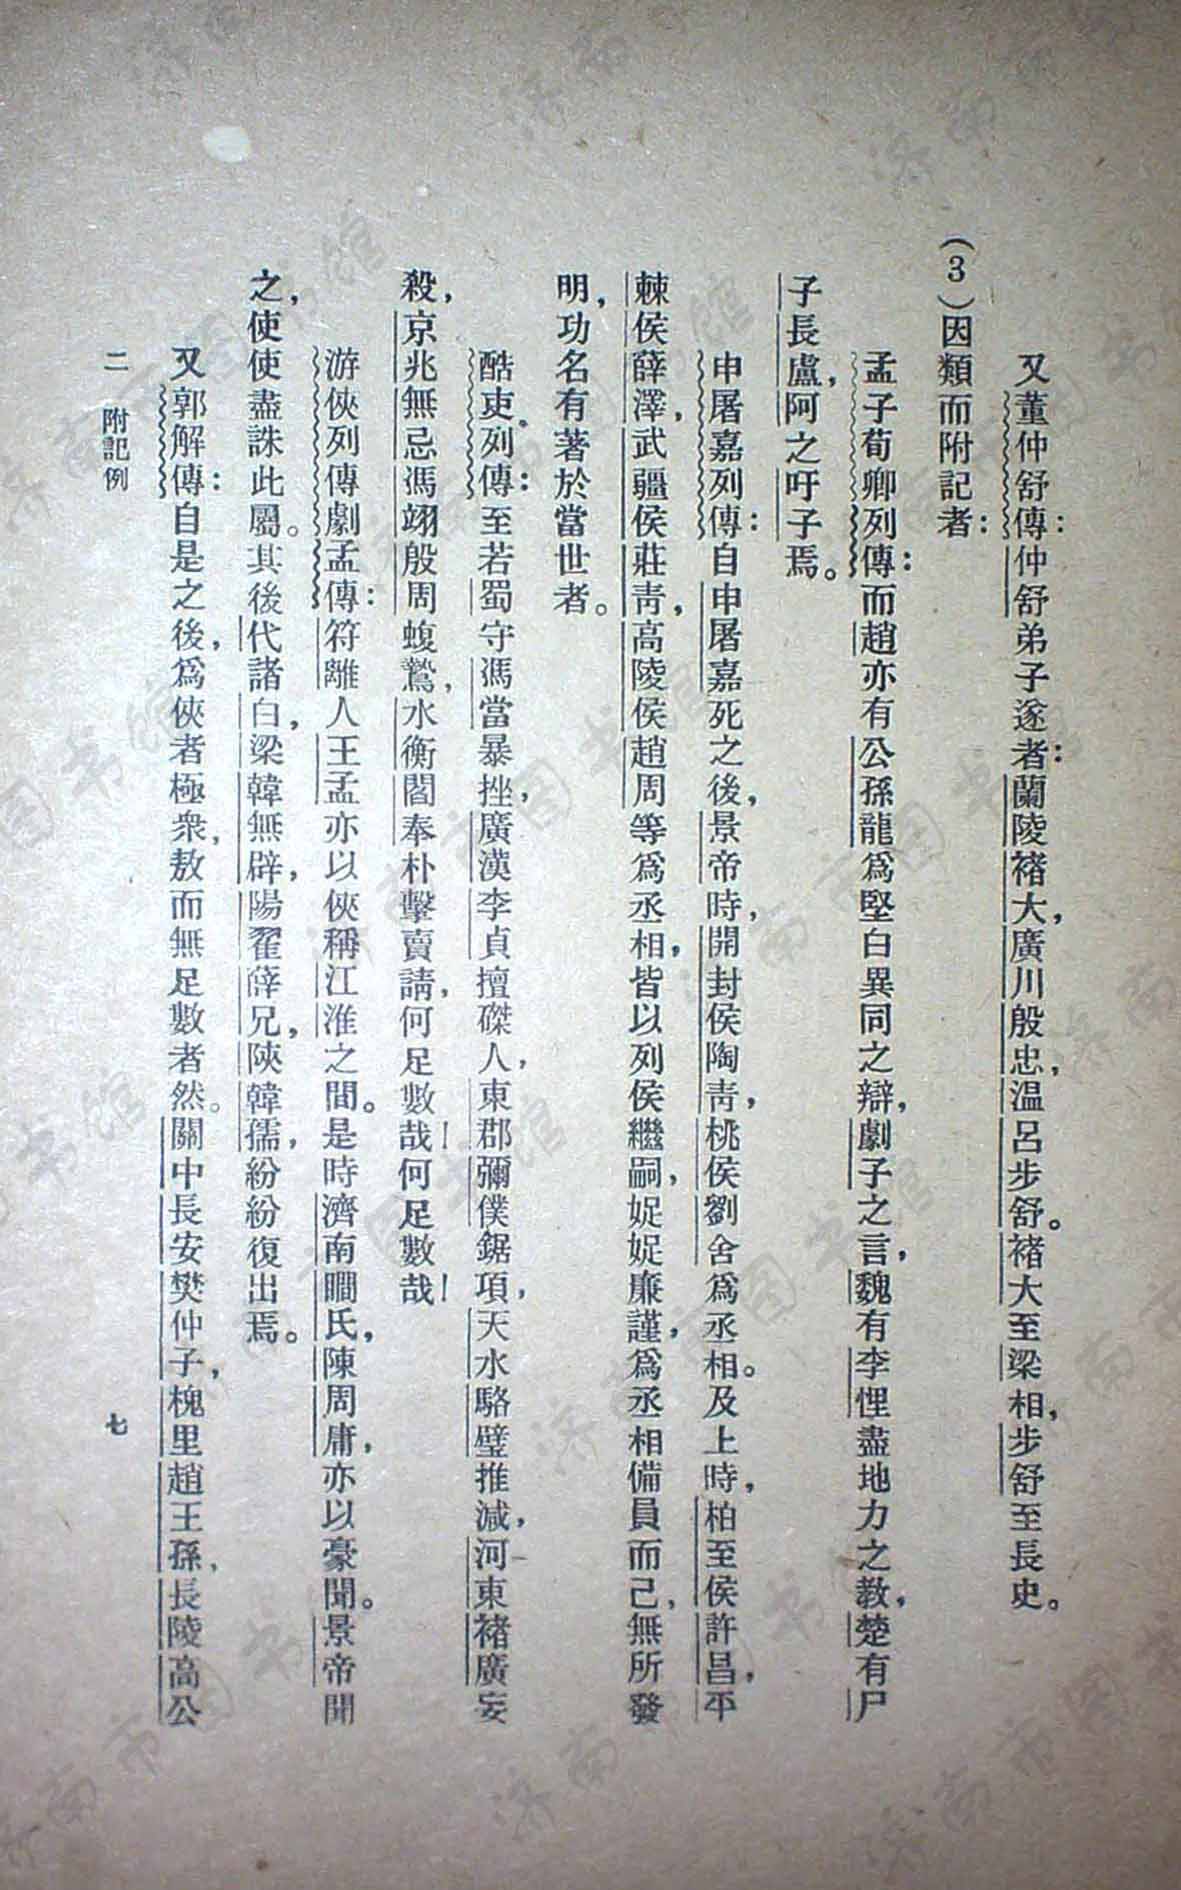 又董仲舒傳：仲舒弟子遂者：蘭陵褚大，廣川殷忠，溫呂步舒。褚大至梁相，步舒至長史。
（3）因類而附記者：
孟子荀卿列傳：而趙亦有公孫龍爲堅白異同之辯，劇子之言，魏有李悝盡地力之教，楚有尸
子長盧，阿之吁子焉。
申屠嘉列傳：自申屠嘉死之後，景帝時，開封侯陶靑，桃侯劉舍爲丞相。及上時，柏至侯許昌，平
棘侯薛澤，武疆侯莊靑，高陵侯趙周等爲丞相，皆以列侯繼嗣，娖娖廉謹，爲丞相備員而已，無所發
明，功名有著於當世者。
酷吏列傳：至若蜀守馮當暴挫，廣漢李貞擅磔人，東郡彌僕鋸項，天水駱璧推減，河東褚廣妄
殺，京兆無忌馮翊殷周蝮鷙，水衡閻奉朴擊賣請，何足數哉！何足數哉！
游俠列傳劇孟傳：符離人王孟亦以俠稱江淮之間。是時濟南瞯氏，陳周庸，亦以豪聞。景帝聞
之，使使盡誅此屬。其後代諸白，梁韓無辟，陽翟薛兄，陝韓孺，紛紛復出焉。
又郭解傳：自是之後，爲俠者極衆，敖而無足數者然。關中長安樊仲子，槐里趙王孫，長陵高公
二 附記例
七
济南市图书馆